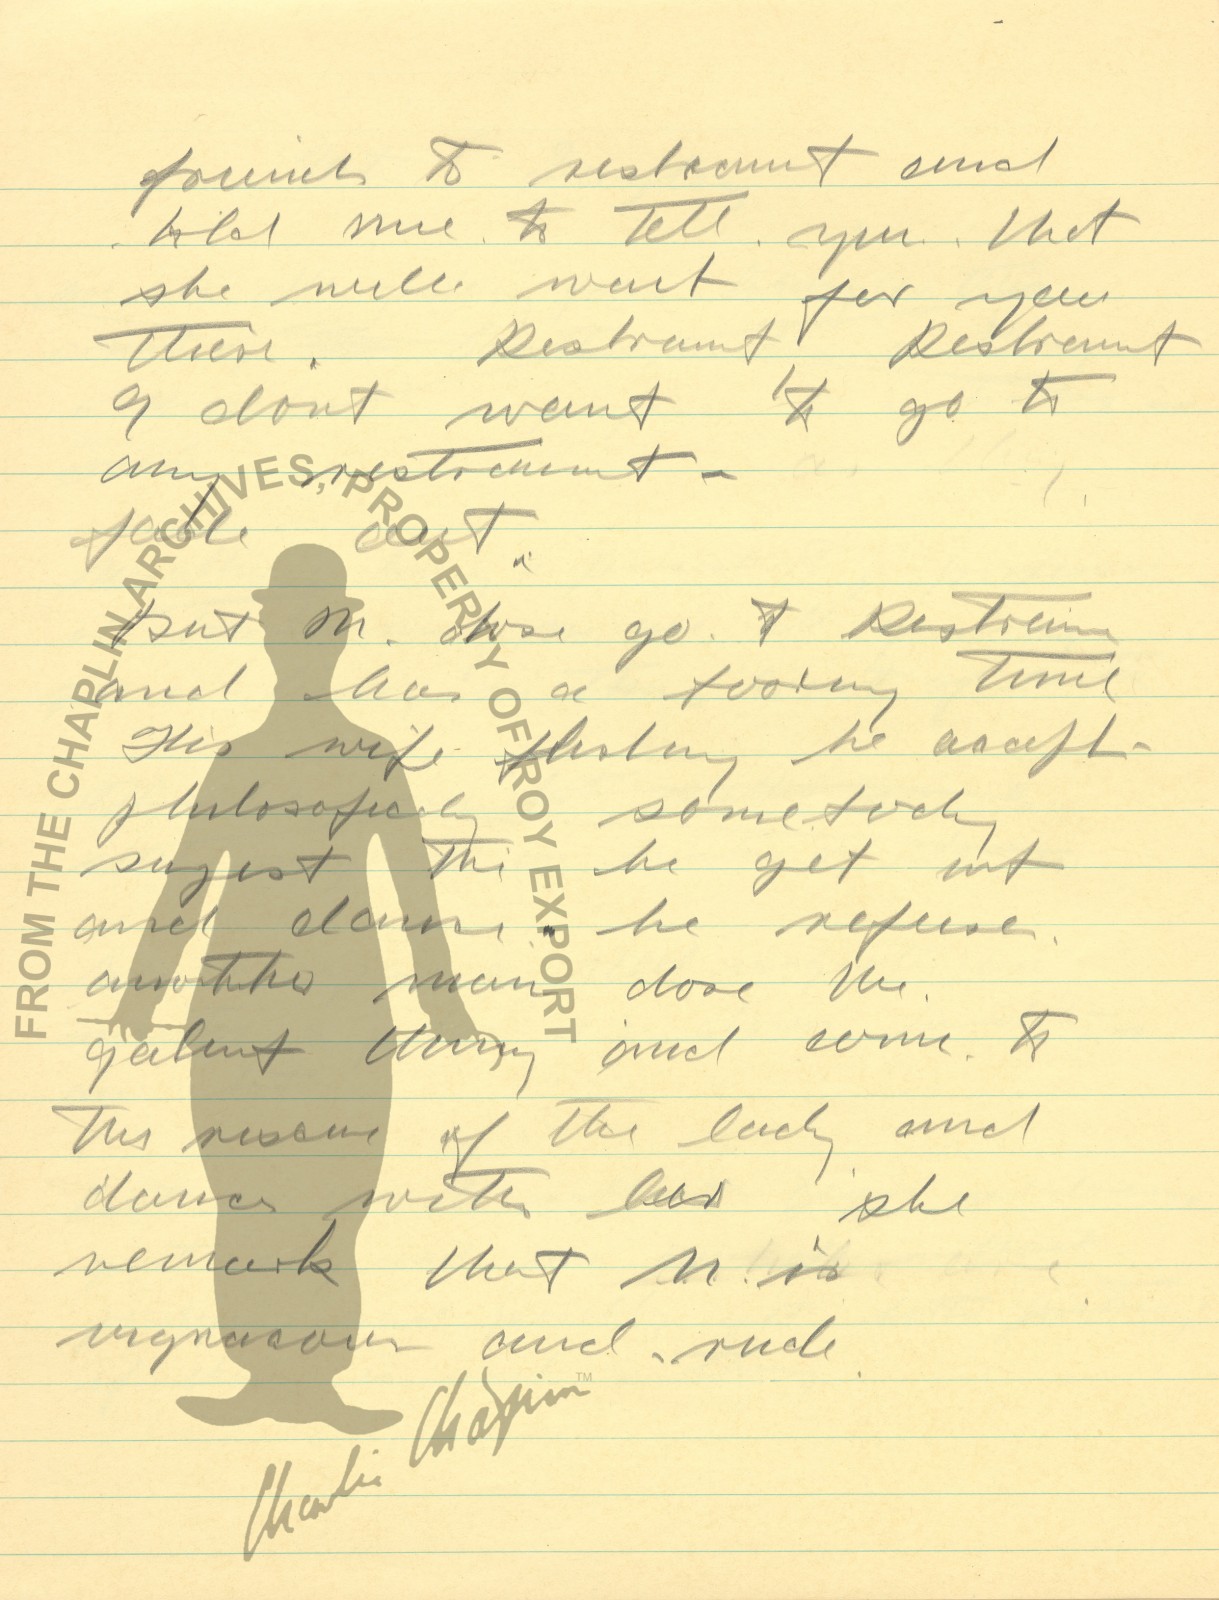 friends to restraunt and
told me to tell you that
she will wait for you
there. Restraunt Restraunt
I dont want to go to
any restraunt -
fade out.
but M. dose go to Restraun
and has a time
His wife he accept
philosoficaly somebody
sugest he get up
and dance. he refuse.
another man dose the
galent thing and come to
the rescue of the lady and
dance with her she
remark that M. is
and rude.
FROM THE CHAPLIN ARCHIVES, PROPERTY OF ROY EXPORT
Charlie Chaplin™